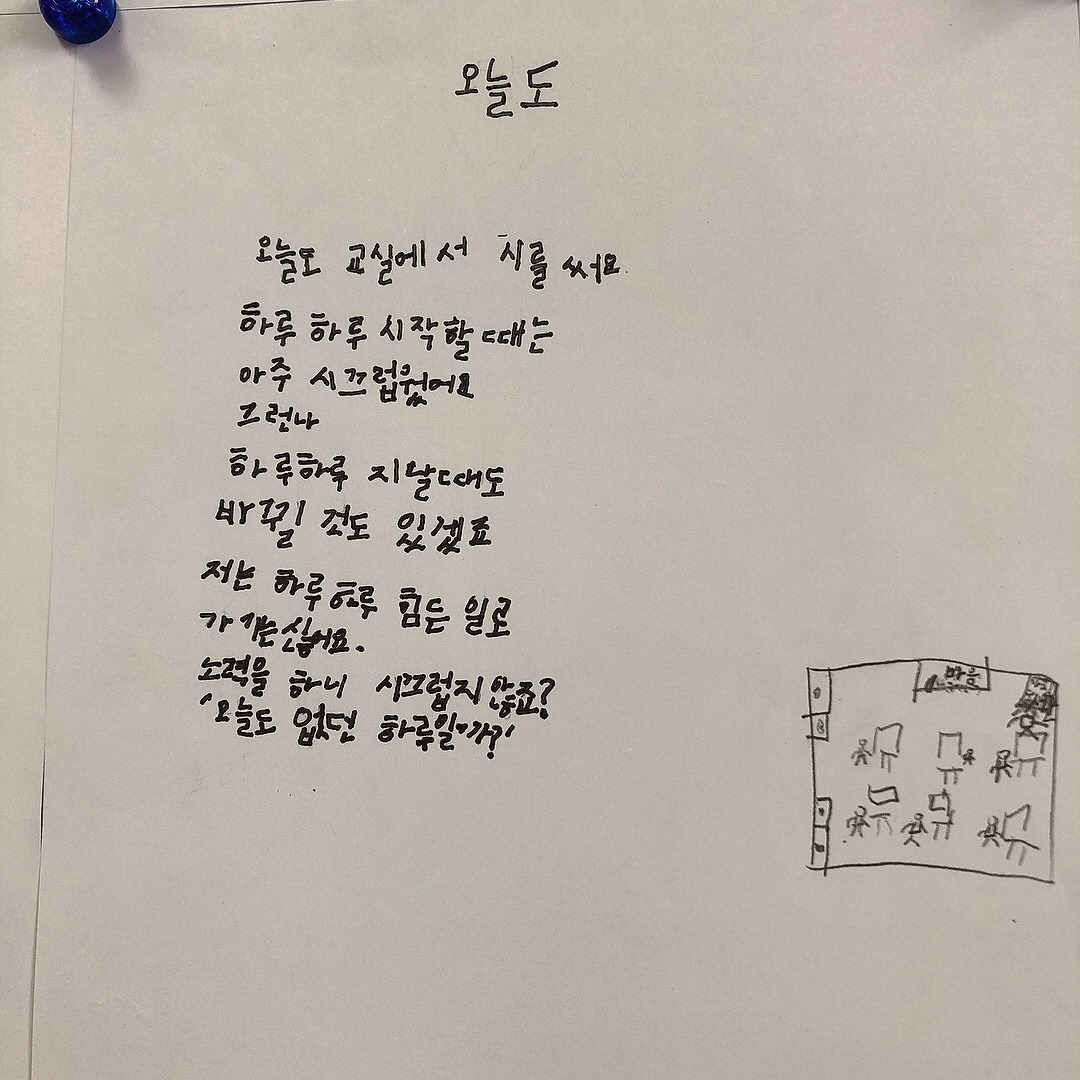 오늘도
오늘도 교실에서 시를 써요.
하루 하루 시작할 때는
아주 시끄럽웠어요
그런나
하루하루 지날때도
바뀔 것도 있겠죠
저는 하루 하루 힘든 일로
가기는 싫어요.
노력을 하니 시끄럽지 않죠?
'오늘도 없던 하루일까?'
마음